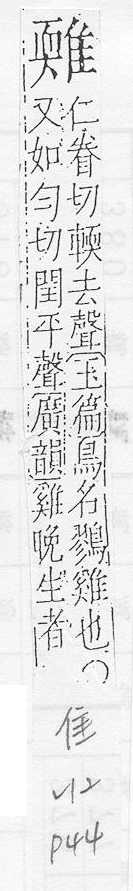 仁眷切輭去聲玉篇鳥名鷚雞也○
又如勻切閏平聲廣韻雞晚生者
隹
P44